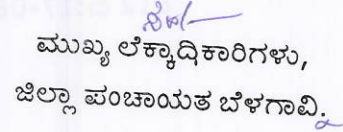 ಸಹಿ/-
ಮುಖ್ಯ ಲೆಕ್ಕಾಧಿಕಾರಿಗಳು,
ಜಿಲ್ಲಾ ಪಂಚಾಯತ ಬೆಳಗಾವಿ.